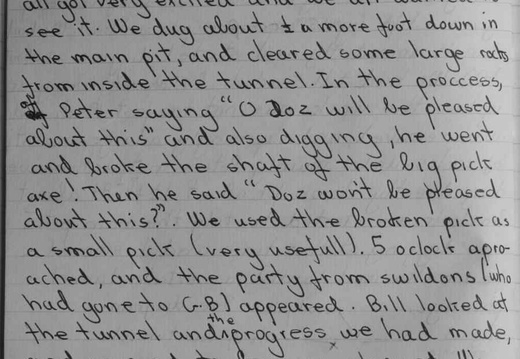 all got very excited and we all wanted to
see it. We dug about ½ a more foot down in
the main pit, and cleared some large rocks
from inside the tunnel. In the proccess,
of Peter saying "O Doz will be pleased
about this" and also digging, he went
and broke the shaft of the big pick
axe! Then he said "Doz won't be pleased
about this?". We used the broken pick as
a small pick (very usefull). 5 oclock apro-
ached, and the party from swildons (who
had gone to G.B) appeared. Bill looked at
the tunnel and the progress we had made,